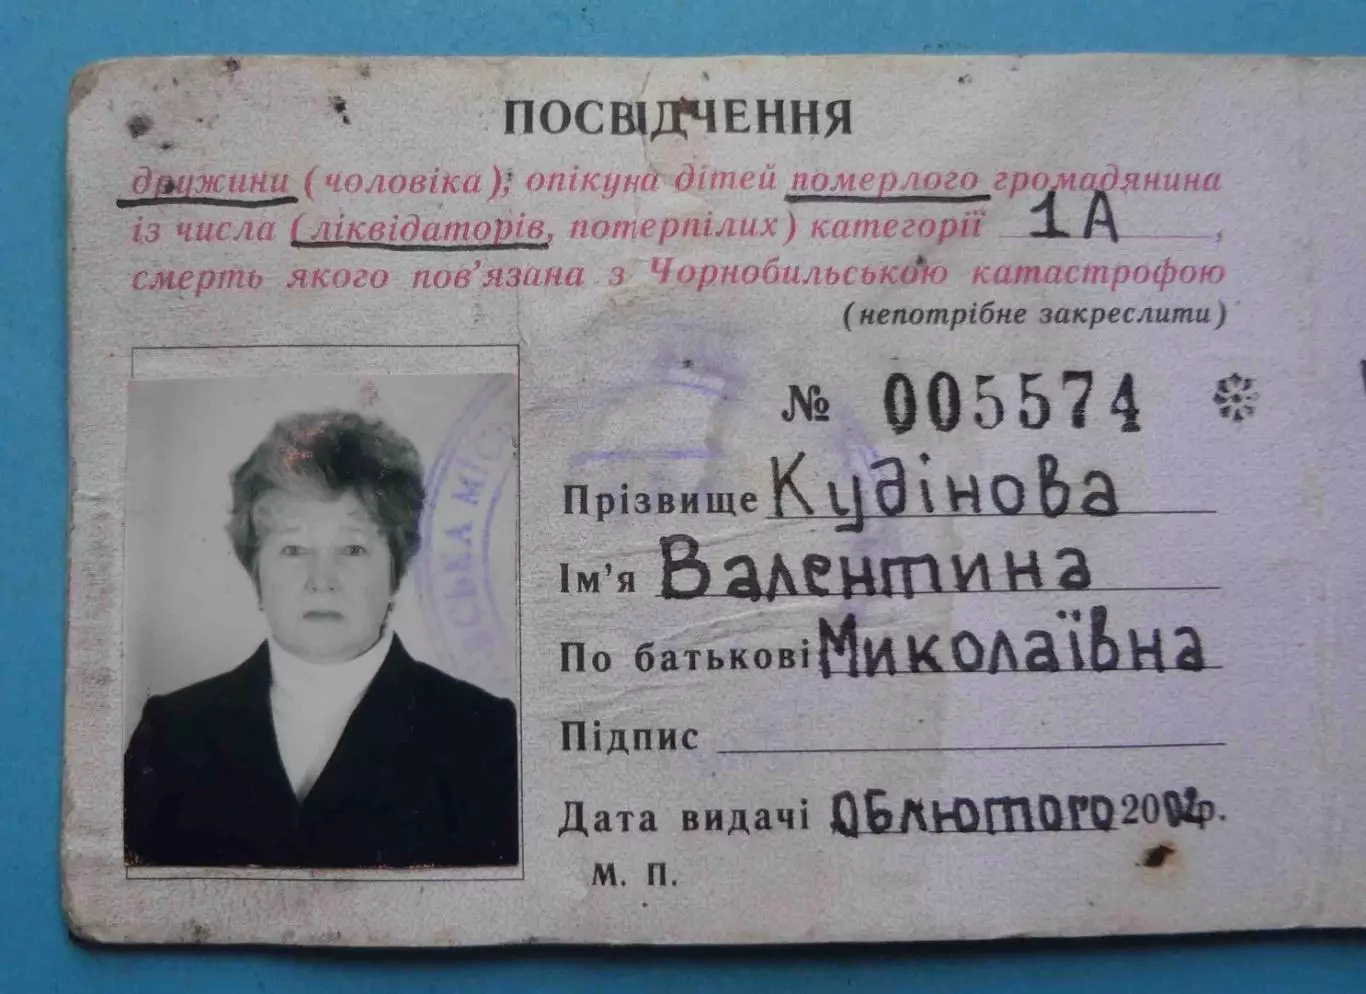 ПОСВІДЧЕННЯ
дружини (чоловіка); опікуна дітей померлого громадянина
із числа (ліквідаторів, потерпілих) категорії 1А,
смерть якого пов'язана з Чорнобильською катастрофою
(непотрібне закреслити)
№ 005574
Прізвище Кудінова
Ім'я Валентина
По батькові Миколаївна
Підпис
Дата видачі 06 лютого 2002р.
М. П.
СЬКА МІС